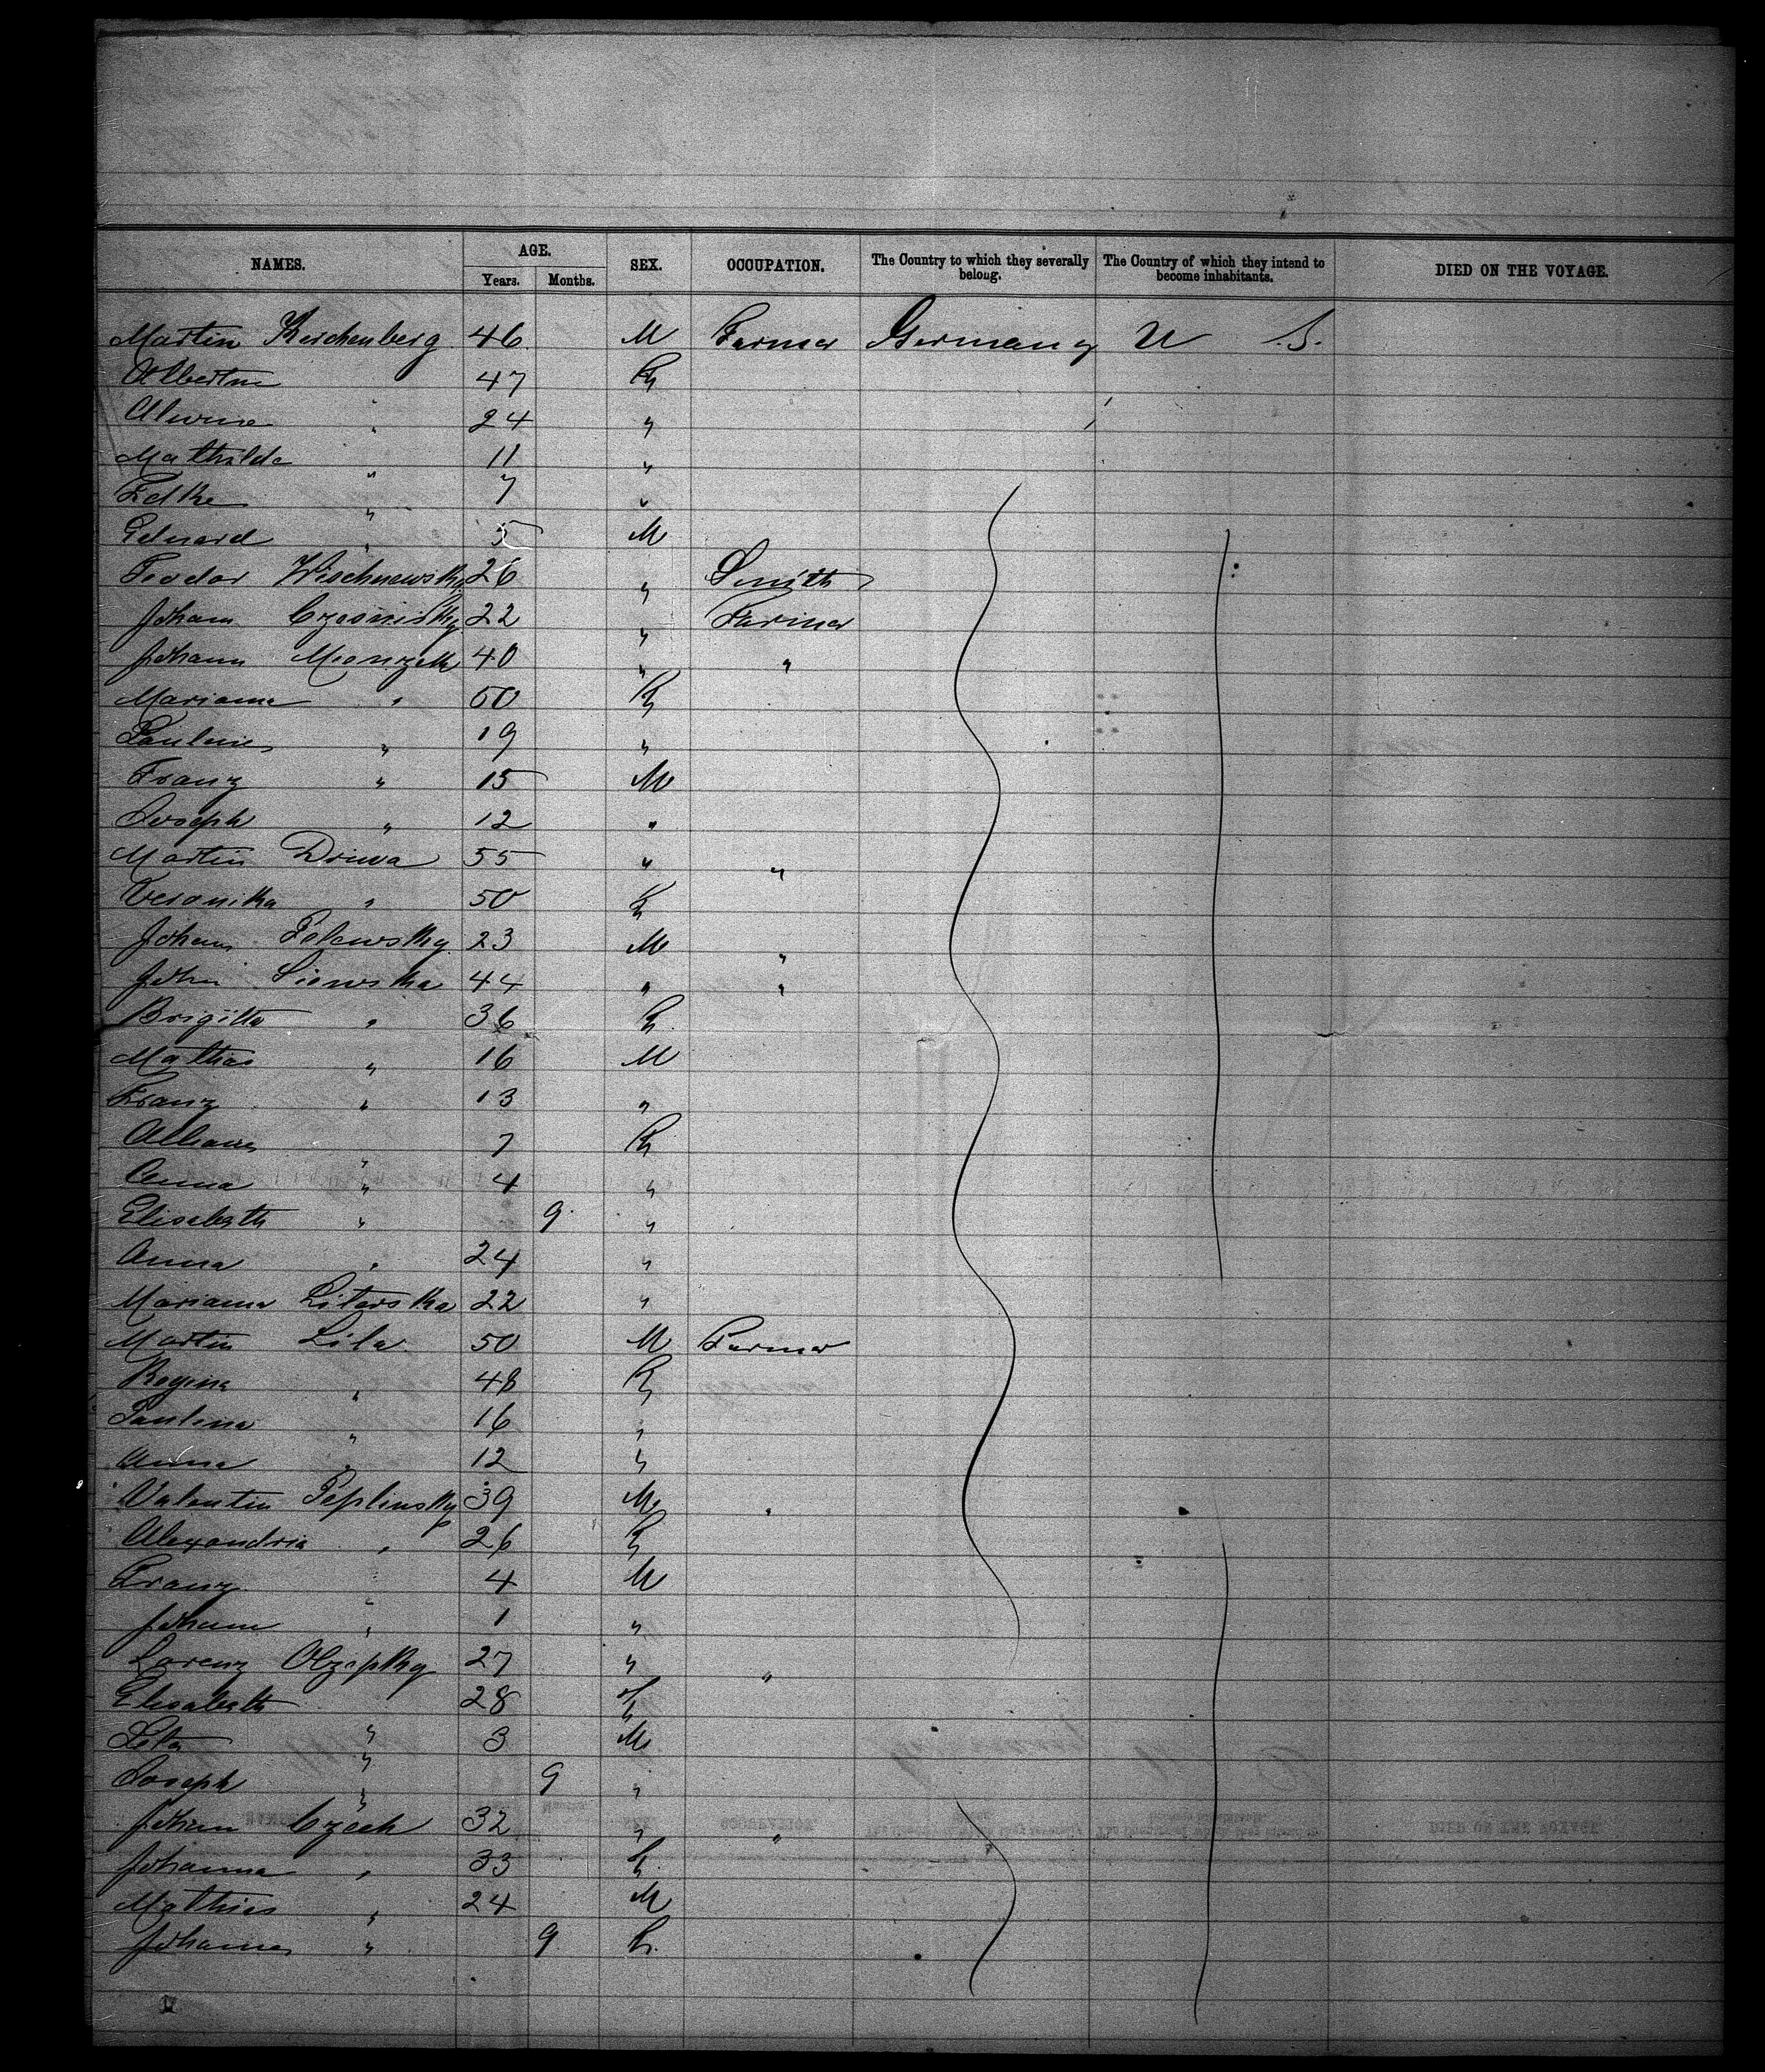 NAMES. AGE. SEX. OCCUPATION. The Country to which they severally belong. The Country of which they intend to become inhabitants. DIED ON THE VOYAGE.
Years. Months.
Martin 46 M Farmer Germany U S.
Albertine 47 F
Alwine " 24 "
Mathilde " 11 "
" 7 "
Eduard " 5 M
Teodor Wischnewsky 26 " Smith
Johann 22 " Farmer
Johann 40 " "
Marianna " 50 F
Pauline " 19 "
Franz " 15 M
Joseph " 12 "
Martin Driwa 55 " "
Veronika " 50 F
Johann Polewsky 23 M "
John 44 " "
Brigitta " 36 F
Mathias " 16 M
Franz " 13 "
" 7 F
Anna " 4 "
Elisabeth " 9 "
Anna " 24 "
Marianna Literska 22 "
Martin Lila 50 M Farmer
Regina " 48 F
Paulina " 16 "
Anna " 12 "
Valentin Peplinsky 39 M "
Alexandria " 26 F
Franz " 4 M
Johann " 1 "
Lorenz 27 " "
Elisabeth " 28 F
" 3 M
Joseph " 9 "
Johann Czech 32 " "
Johanna " 33 F
Mathies " 24 M
Johanna " 9 F.